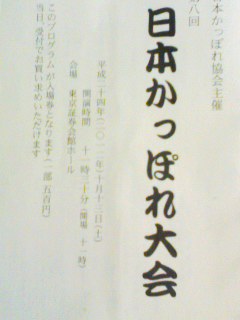 日本かっぽれ協会主催
第八回
日本かっぽれ大会
平成二十四年(二〇一二年)十月十三日(土)
開演時間 十一時三十分(開場 十一時)
会場 東京証券会館ホール
このプログラムが入場券となります(一部 五百円)
当日、受付でお買い求めいただけます